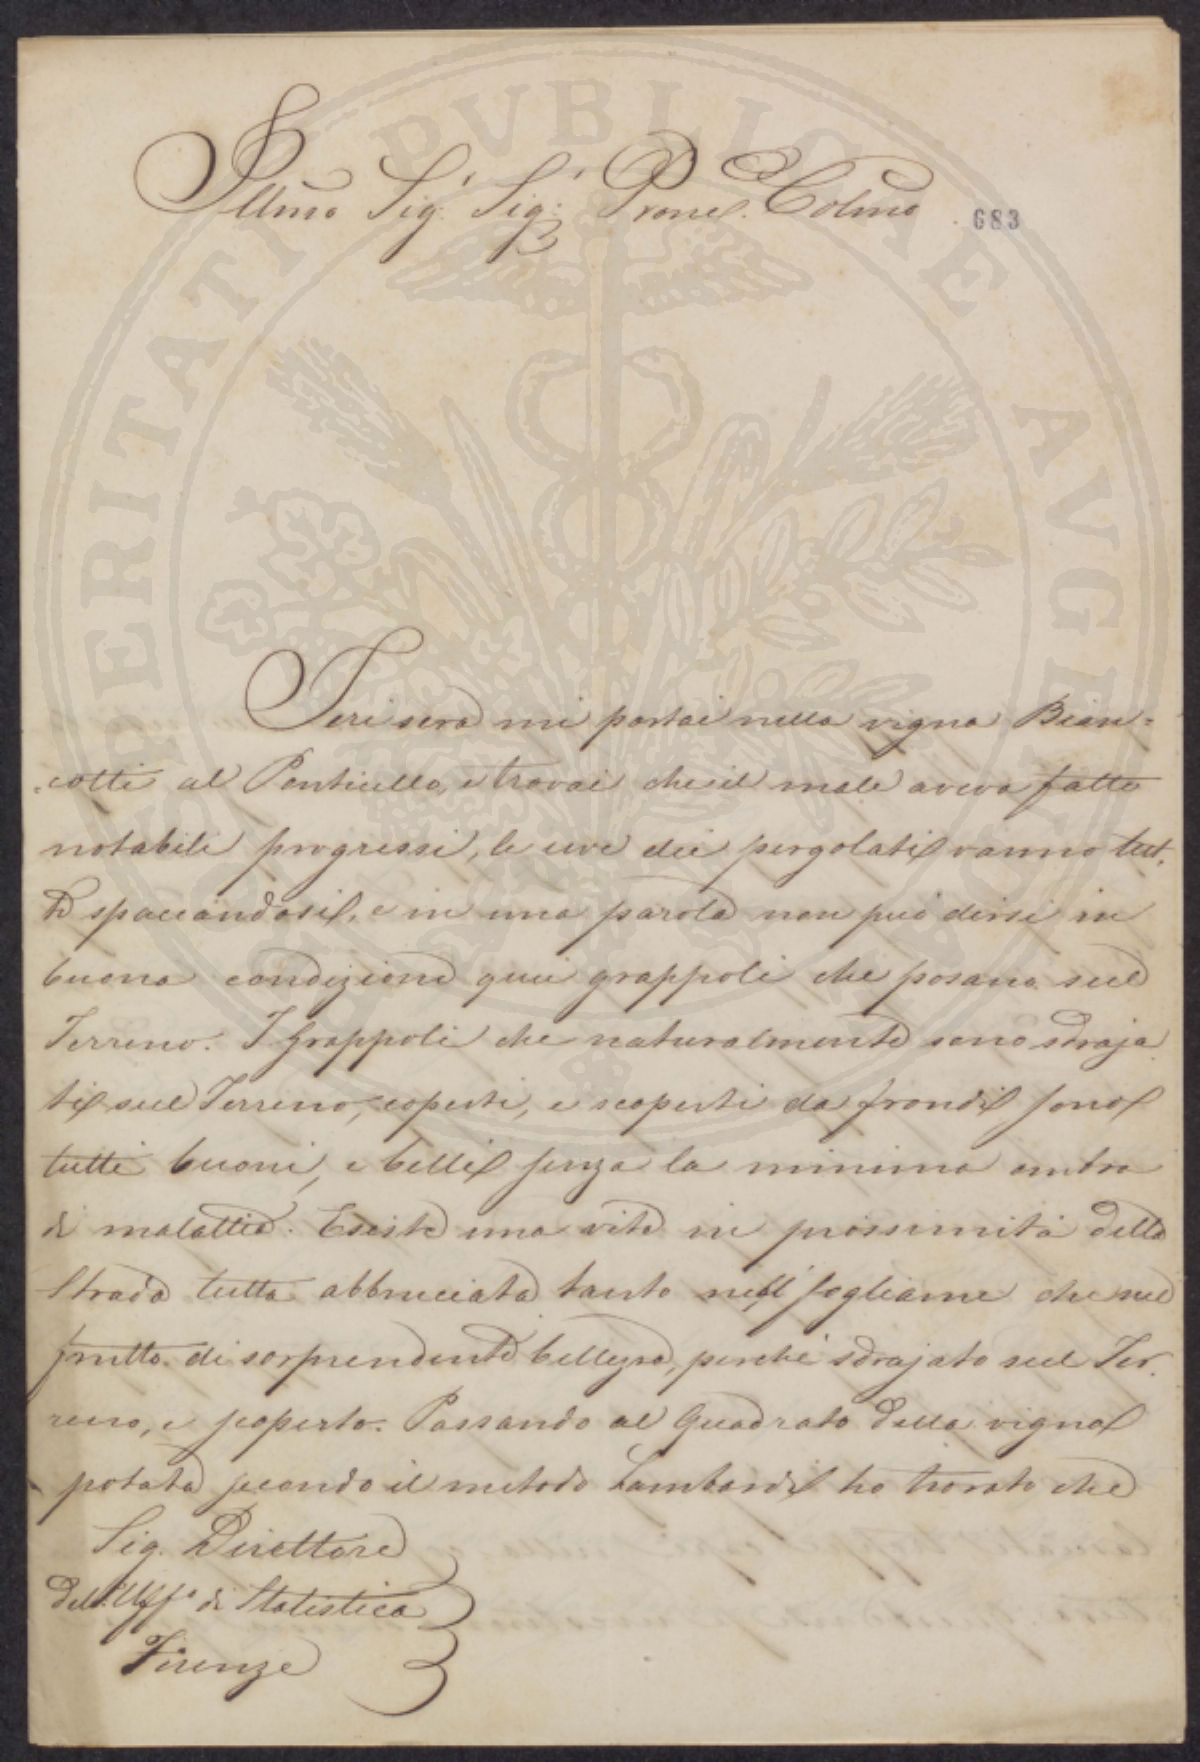 Illmo Sig. Sig: Prone. Colmo
683
Ieri sera mi portai nella vigna Bian=
=cotti al Ponticello, e trovai che il male aveva fatto
notabili progressi, le uve dei pergolati vanno tut=
te spaccandosi, e in una parola non può dirsi in
buona condizione que grappoli che posano sul
Terreno. I Grappoli che naturalmente sono sdraja
ti sul Terreno, coperti, e scoperti da frondi sono
tutti buoni, e belli senza la minima ombra
di malattia. Esiste una vite in prossimità della
Strada tutta abbruciata tanto nel fogliame che nel
frutto di sorprendente bellezza, perchè sdrajato sul Ter=
reno, e scoperto. Passando al Quadrato della vigna
potata secondo il metodo Lambardi ho trovato che
Sig. Direttore
dell'Uffo di Statistica
Firenze
PROSPERITATI PVBLICAE AVGENDAE